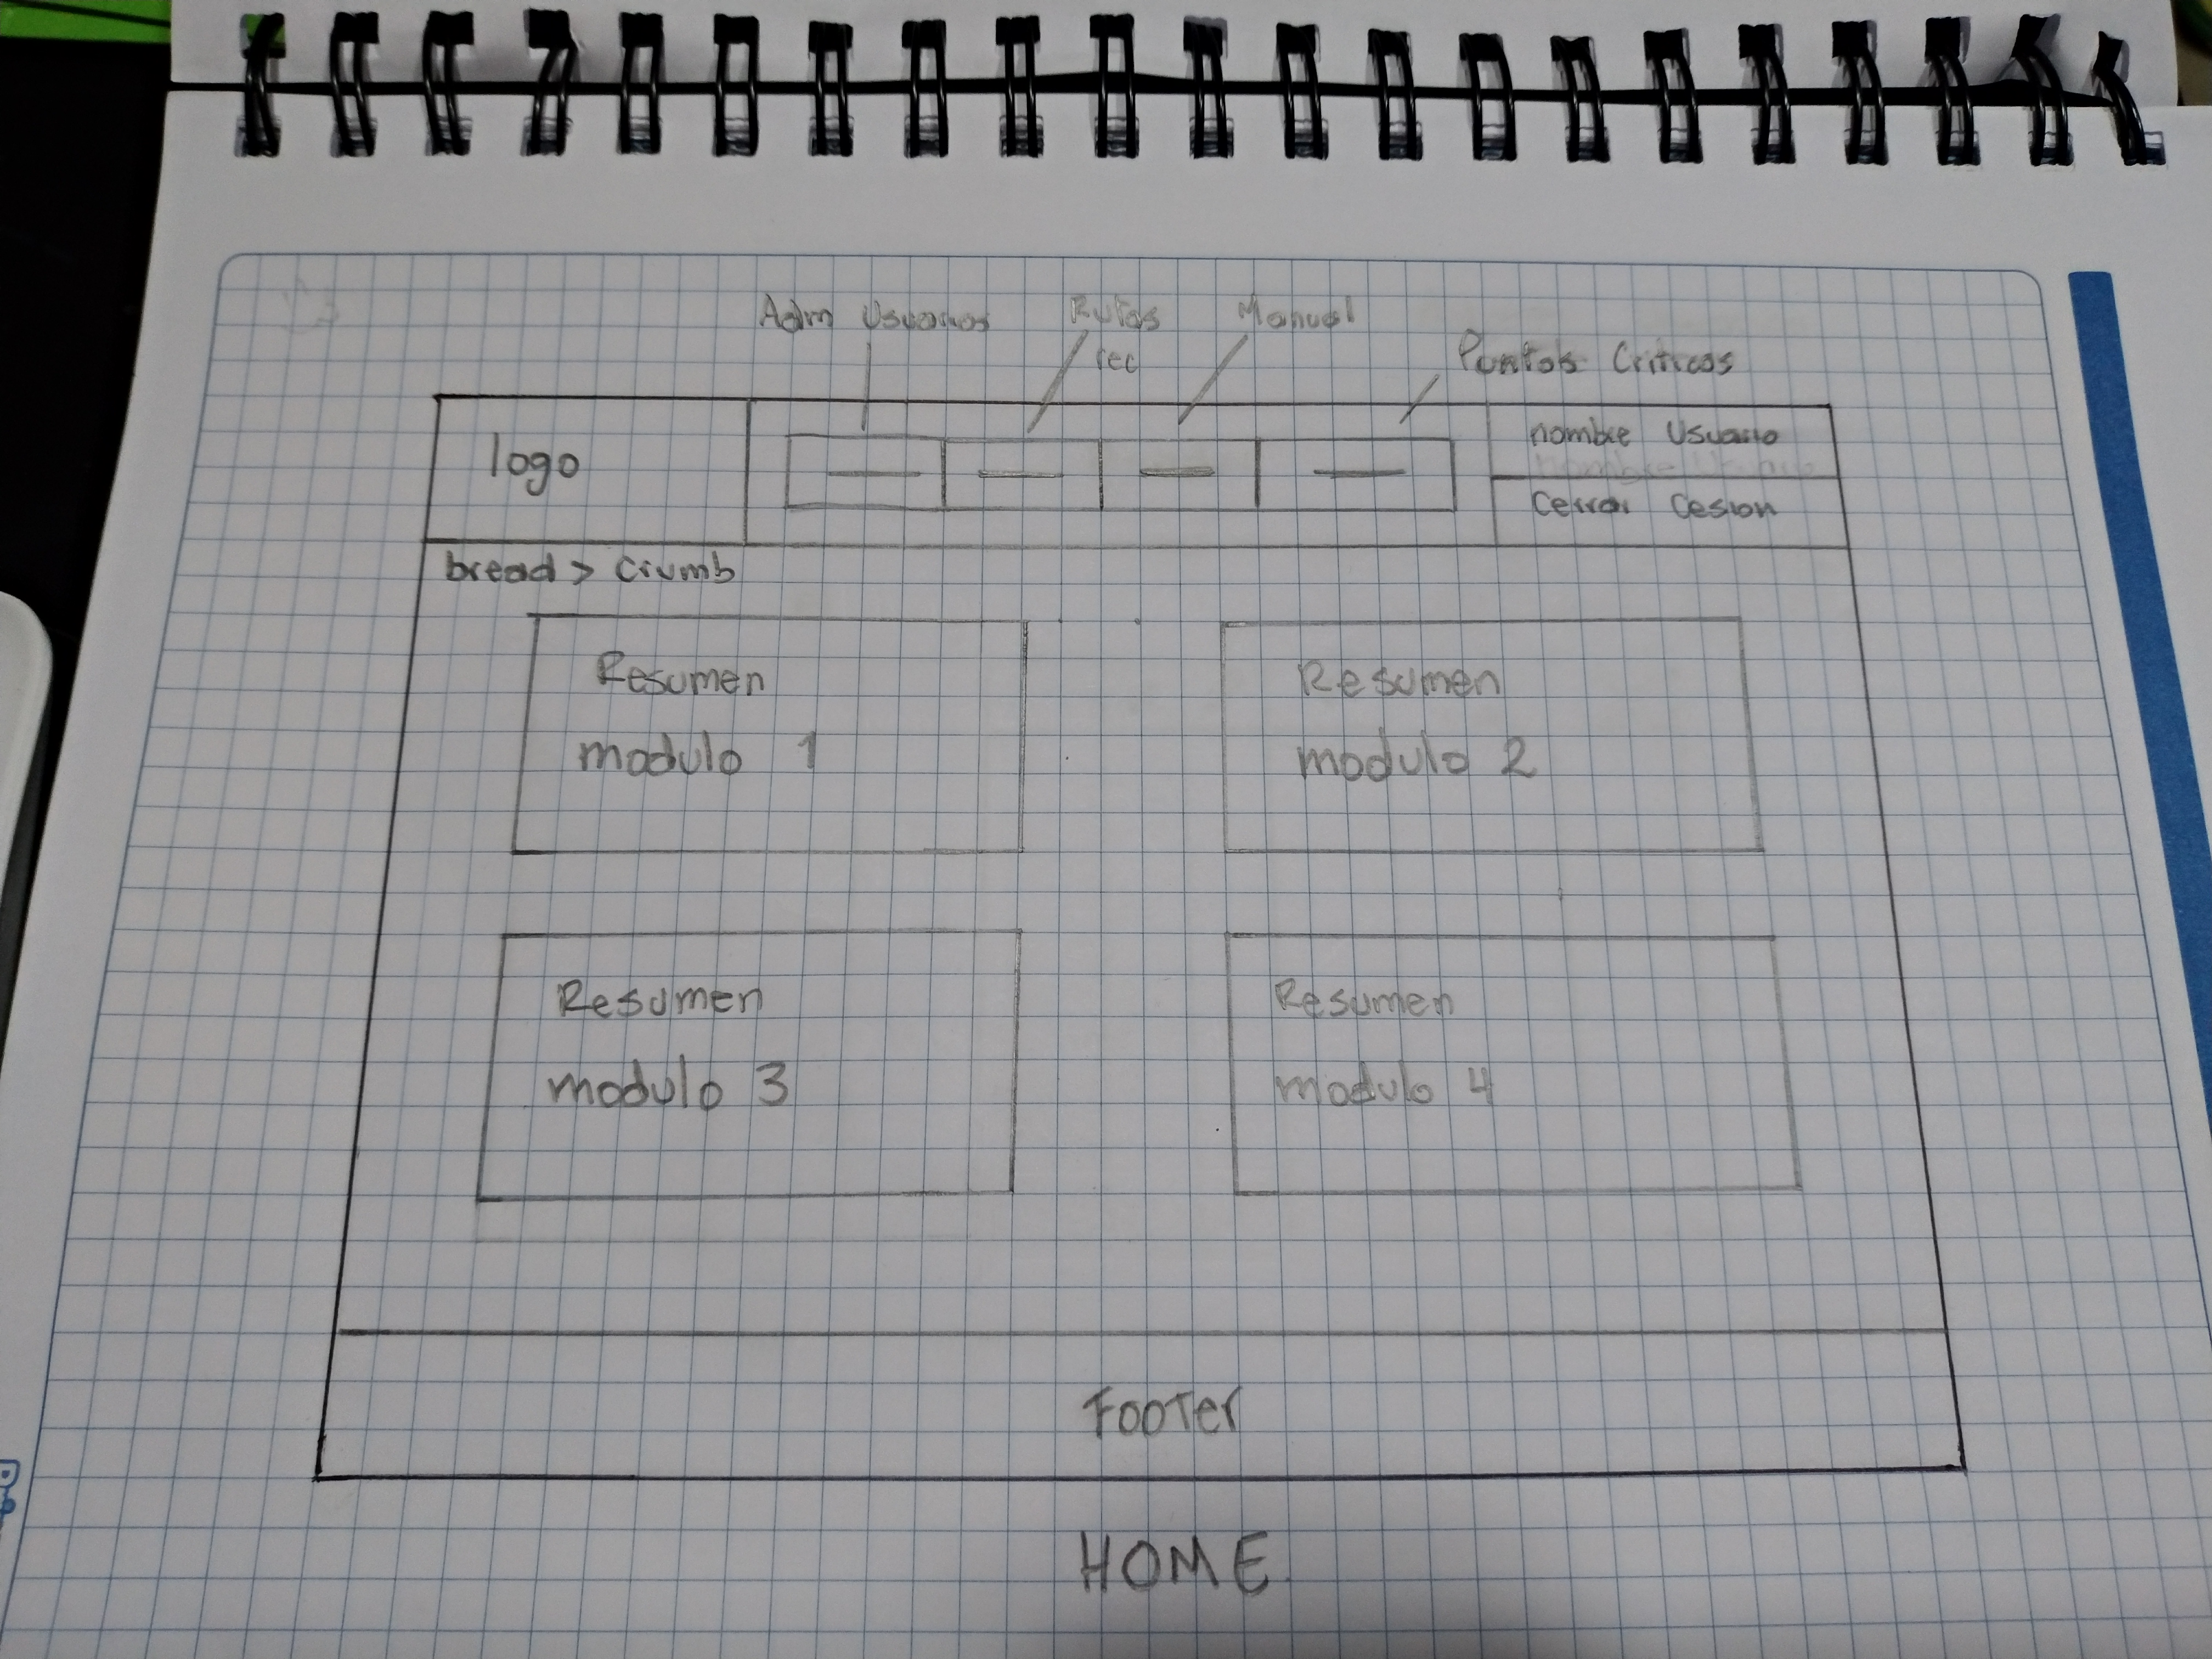 Adm Usuarios
Rutas
rec
Manual
Puntos Criticos
logo
nombre Usuario
Cerrar Cesion
bread > crumb
Resumen
modulo 1
Resumen
modulo 2
Resumen
modulo 3
Resumen
modulo 4
Footer
HOME